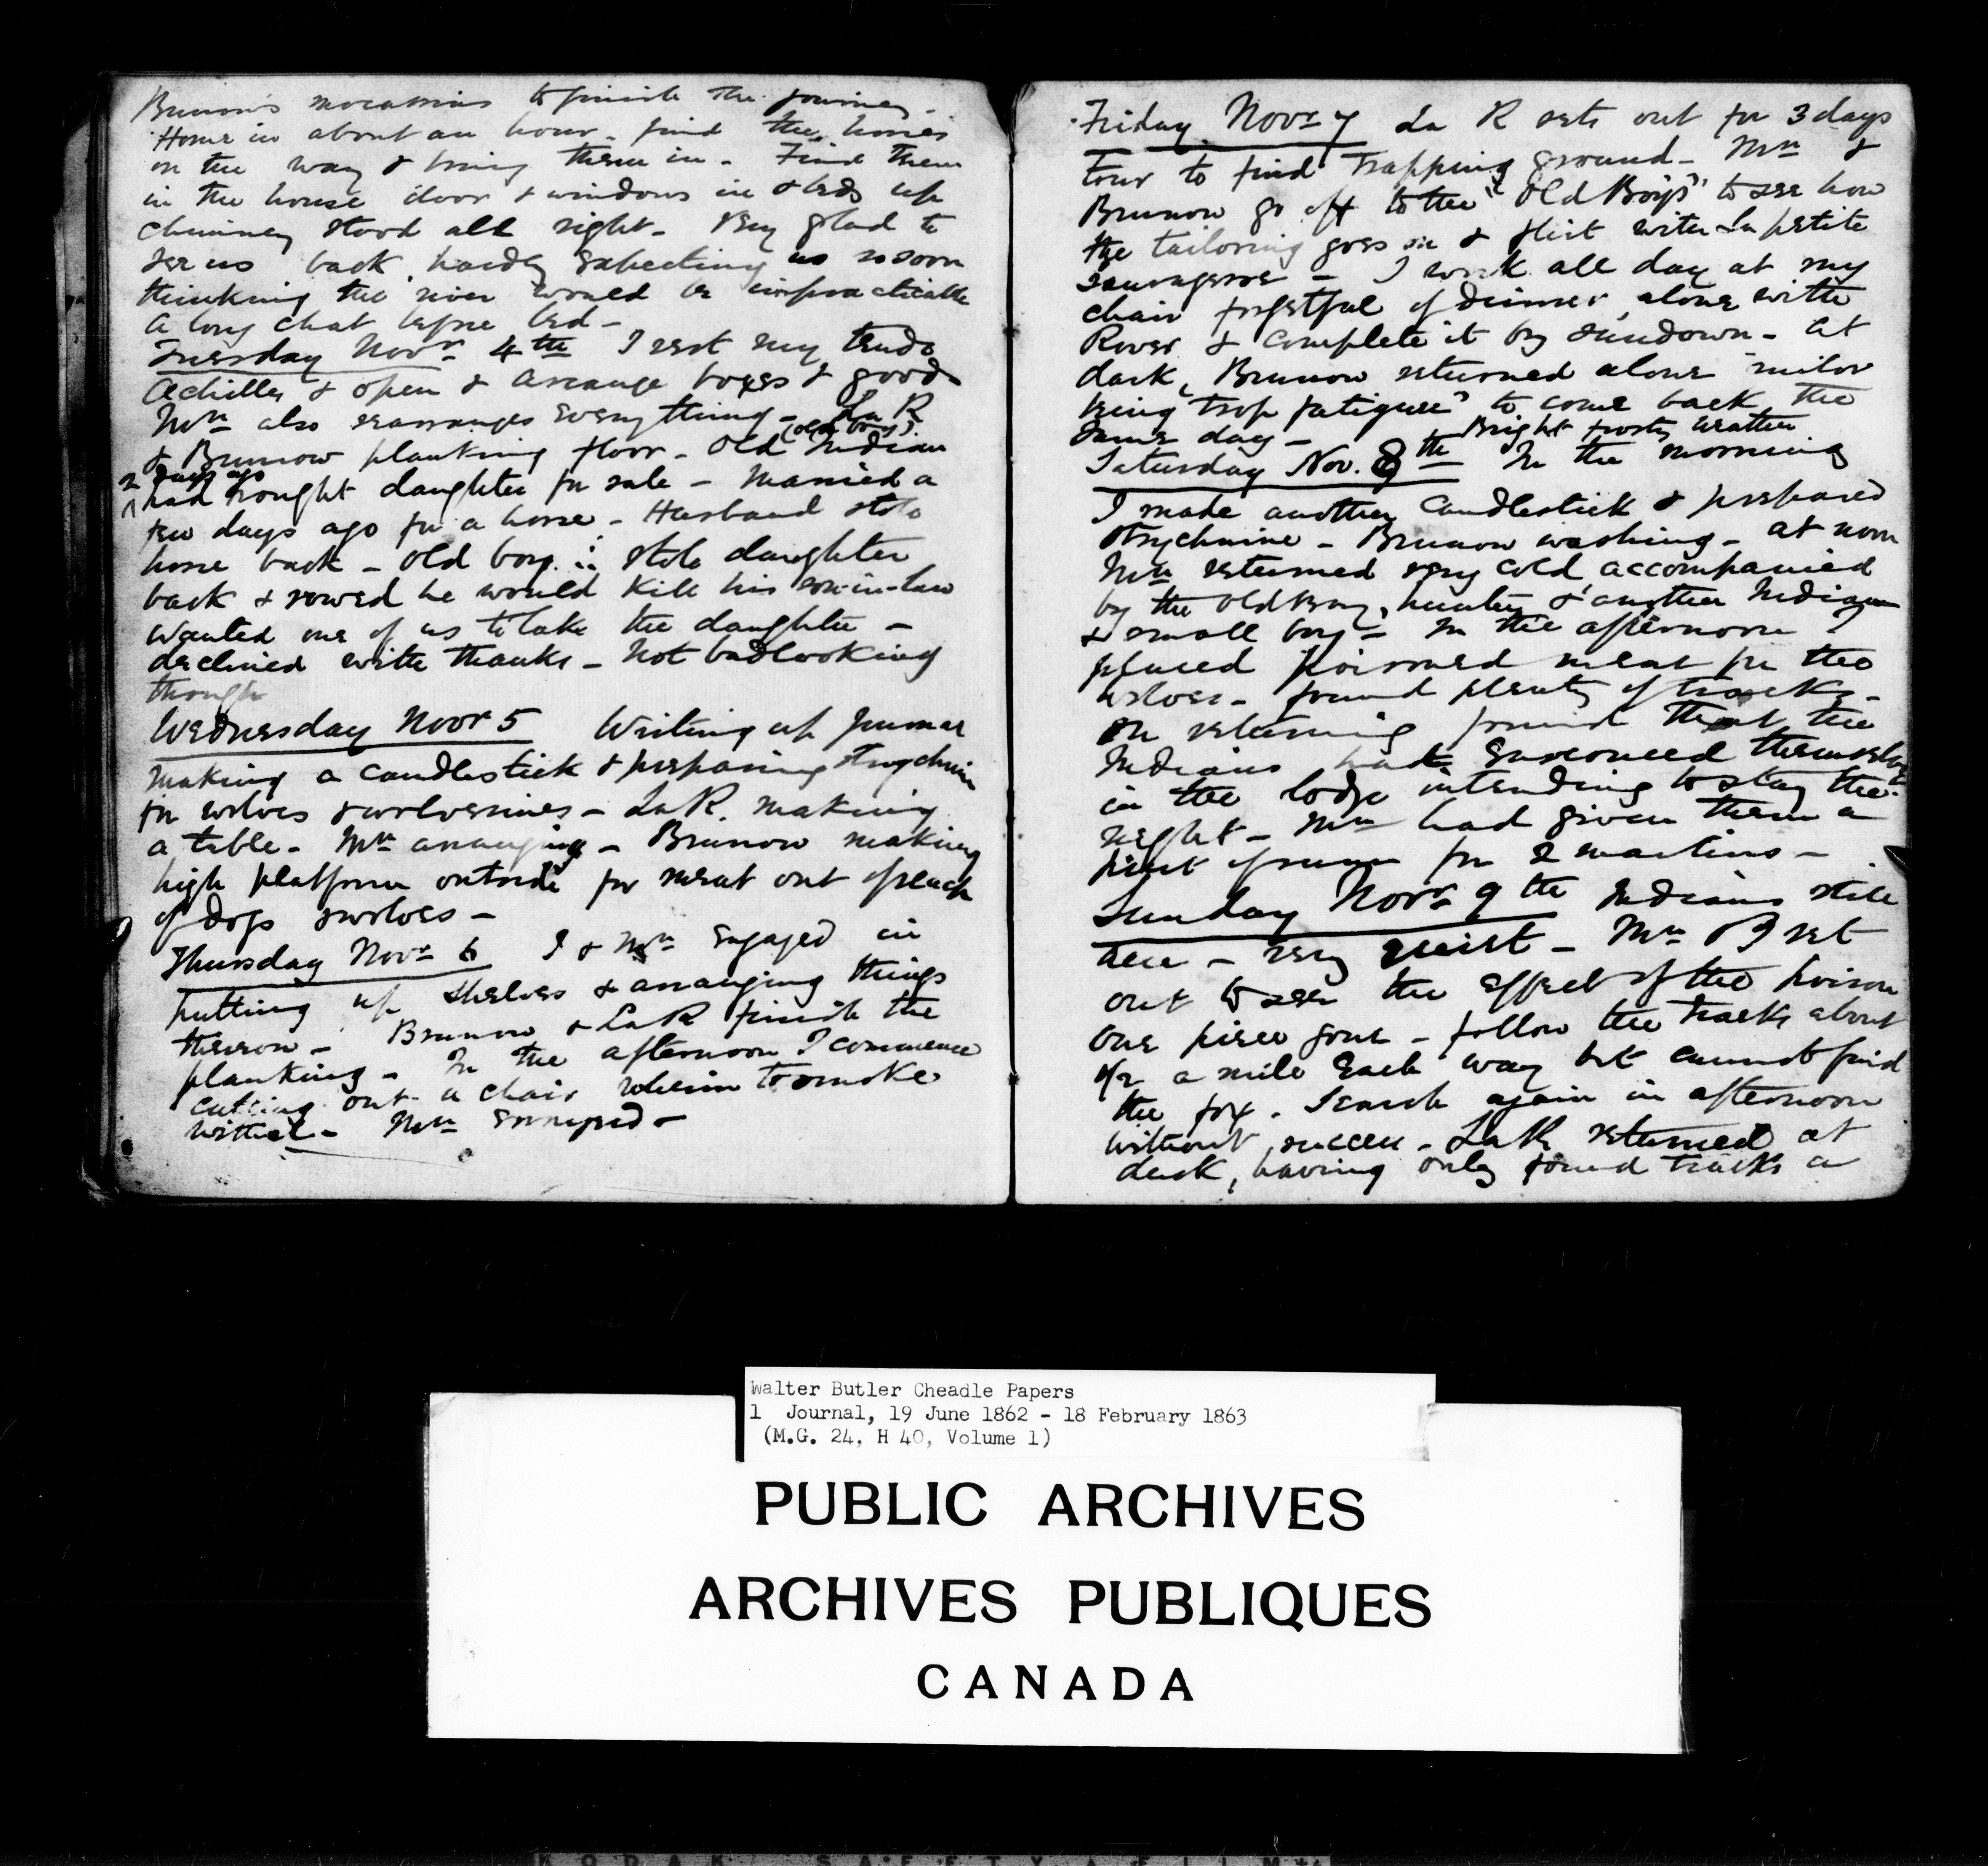 Bruneau's mocassins to finish the journey -
Home in about an hour. find the horses
on the way & bring them in - Find them
in the house door & windows in & beds up
chimney stood all right - Very glad to
see us back, hardly expecting us so soon
thinking the river would be impracticable
A long chat before bed -
Tuesday Novr. 4th I rest my tendo
Achilles & open & arrange boxes & goods
Mn also rearranges everything - La R
& Brunow planking floor - Old (old boy) Indian
2 days ago
had brought daughter for sale - Married a
few days ago for a horse - Husband stole
horse back - Old boy stole daughter
back & vowed he would kill his son-in-law
Wanted one of us to take the daughter -
declined with thanks - Not badlooking
though
Wednesday Novr 5 Writing up journal
making a candlestick & preparing strychnine
for wolves & wolverines - La R. making
a table - Mn arranging - Brunow making
high platform outside for meat out of reach
of dogs & wolves -
Thursday Novr 6 I & Mn engaged in
putting up shelves & arranging things
thereon - Brunow & La R finish the
planking - In the afternoon I commence
cutting out a chair wherein to smoke
withal - Mn
Friday Novr 7 La R sets out for 3 days
tour to find trapping ground - Mn &
Brunow go off to the "Old Boy's" to see how
the tailoring goes on & flirt with La petite
sauvagesse - I work all day at my
chair forgetful of dinner, alone with
Rover & complete it by sundown - At
dark, Brunow returned alone milor
being "trop fatiguée" to come back the
same day -
Bright frosty weather
Saturday Nov. 8th In the morning
I made another candlestick & prepared
strychnine - Brunow washing - At noon
Mn returned very cold accompanied
by the Old Boy, hunter & another Indian
& small boy - In the afternoon I
placed poisoned meat for the
wolves - found plenty of tracks -
On returning found that the
Indians had ensconced themselves
in the lodge intending to stay the
night - Mn had given them a
pint of rum for 2 martins -
Sunday Novr 9th Indians still
here - very quiet - Mn & I set
out to see the effect of the poison
One piece gone - follow the tracks about
1/2 a mile each way but cannot find
the fox. Search again in afternoon
without success - La R. returned at
dusk, having only found tracks a
Walter Butler Cheadle Papers
1 Journal, 19 June 1862 - 18 February 1863
(M.G. 24, H 40, Volume 1)
PUBLIC ARCHIVES
ARCHIVES PUBLIQUES
CANADA
KODAK SAFETY FILM